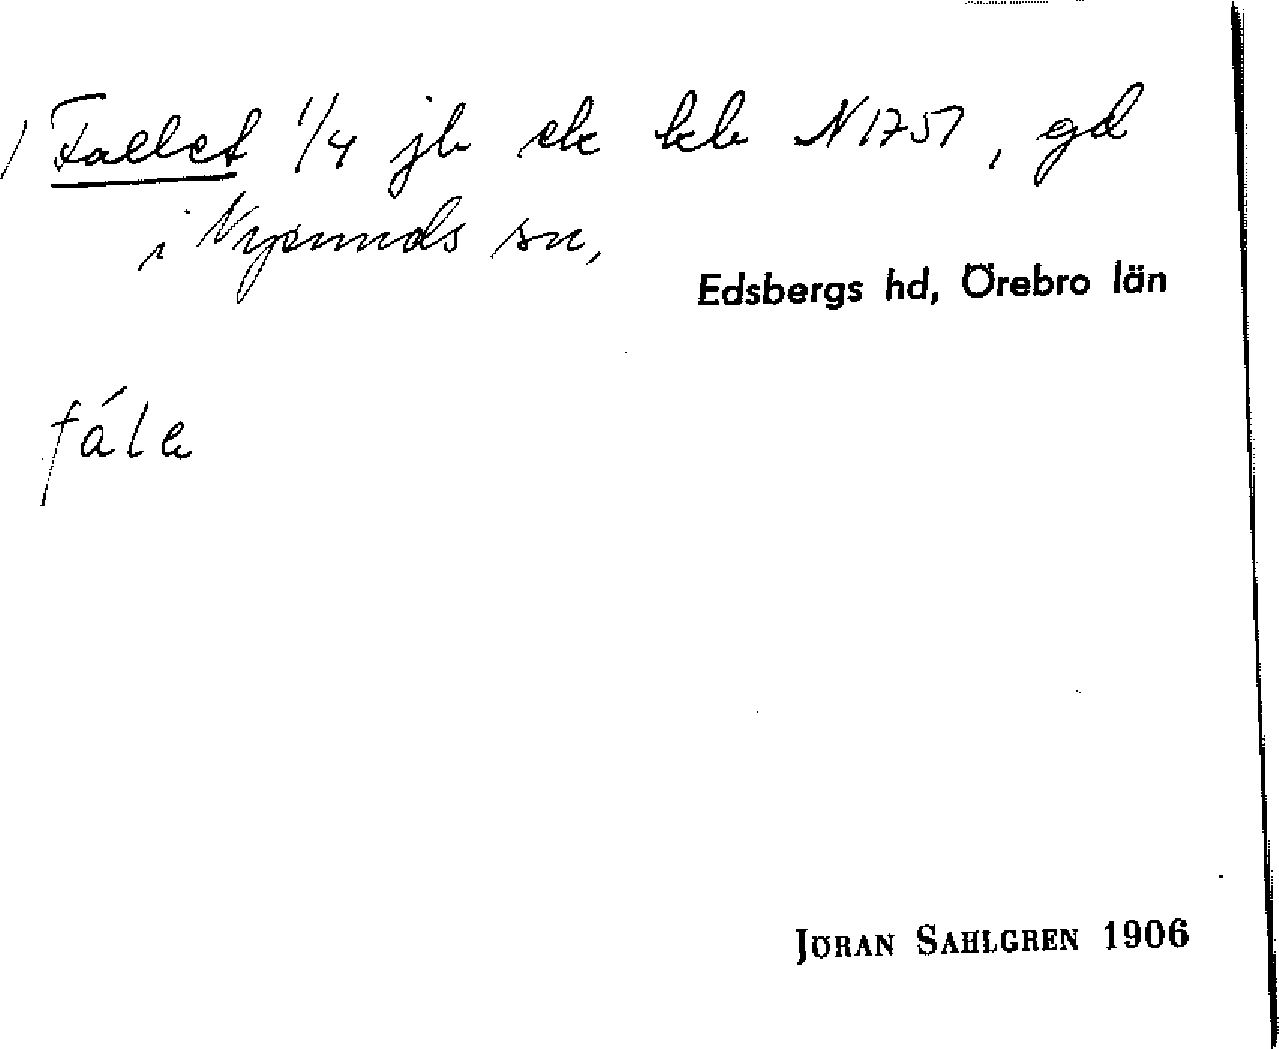 ) Fallet 1/4 jb ek kb N1757, gd
i Nysunds sn,
Edsbergs hd, Örebro län
fála
JÖRAN SAHLGREN 1906